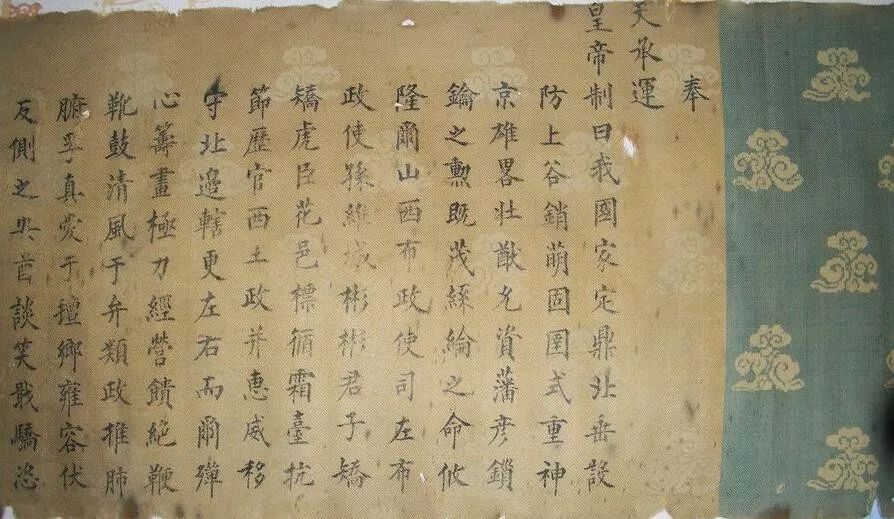 奉
天承運
皇帝制曰我國家定鼎北垂設
防上谷銷萌固圉式重神
京雄畧壯猷允資藩彥鎖
鑰之勳既茂絲綸之命攸
隆爾山西布政使司左布
政使孫維城彬彬君子矯
矯虎臣花邑標循霜臺抗
節歷官西土政并惠威移
守北邊轄更左右而爾殫
心籌畫極力經營饋絕鞭
靴鼓清風于弁類政推肺
腑孚真愛于擅鄉雍容伏
反側之酋談笑戢驕恣